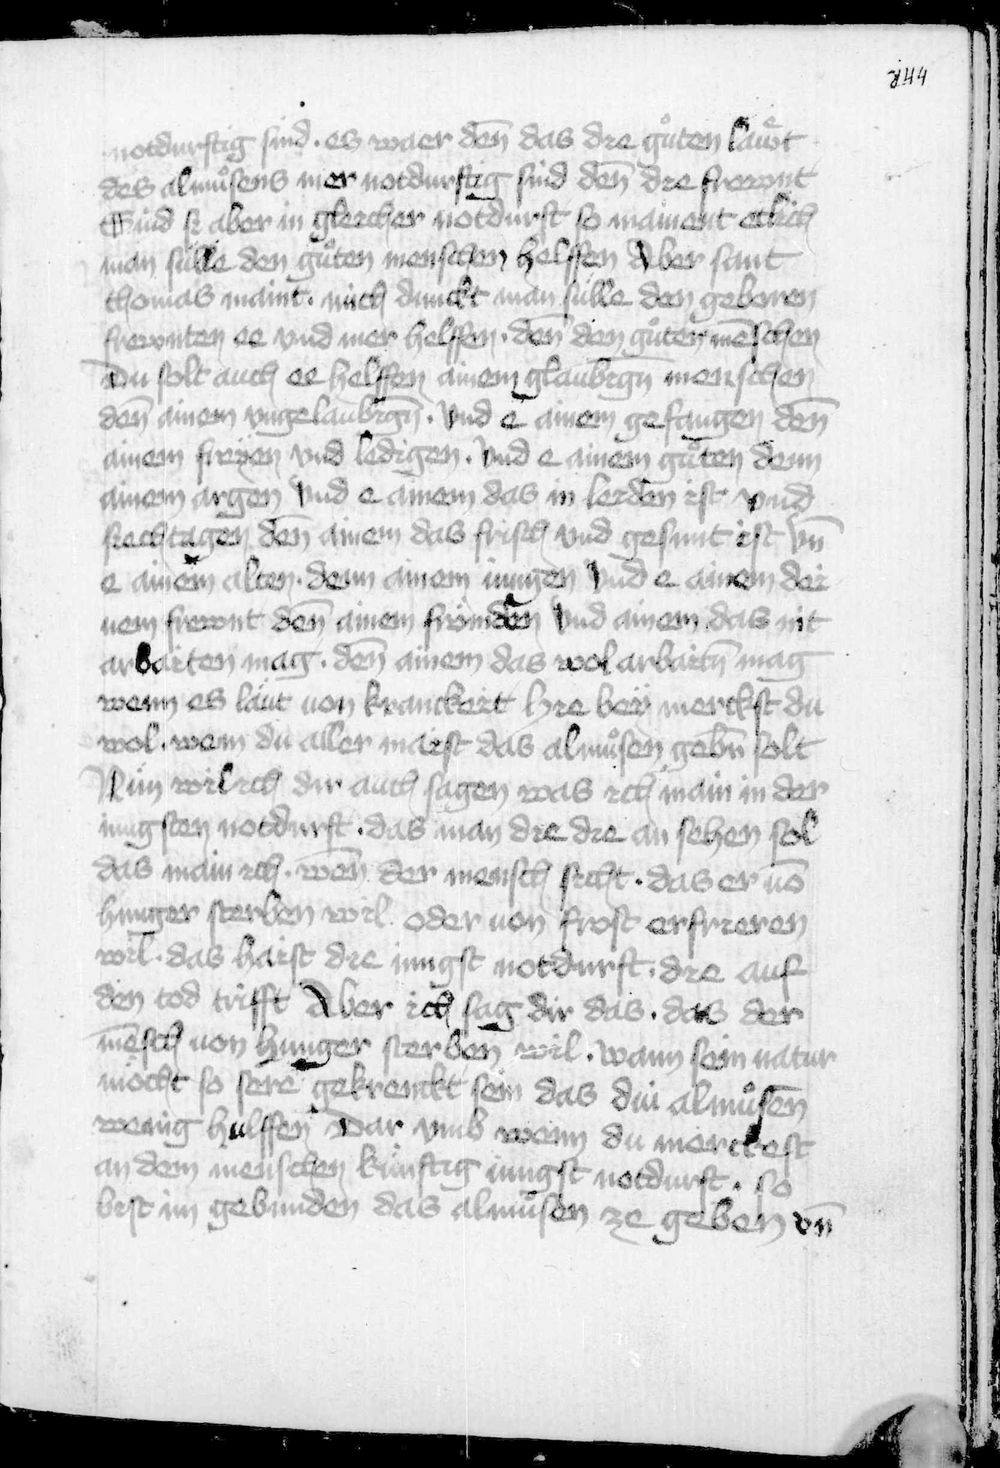 244
notdurftig sind. es waer den̄ das die gůten laẘt
des almůsens mer notdurftig sind den̄ die frewnt
Sind si aber in gleicher notdurft so mainent etlich
man sülle den gůten menschen helffen Aber sant
thomas maint. mich dunckt man sülle den geboren
frewnten ee vnd mer helffen. den̄ den gůten mēschen
Du solt auch ee helffen ainem glaubign̄ menschen
den̄ ainem vngelaubign̄. Vnd e ainem gefangen den̄
ainem freyen vnd ledigen. Vnd e ainem gůten denn
ainem argen Vnd e ainem das in leiden ist vnd
siechtagen den̄ ainem das frisch vnd gesunt ist vn̄
e ainem alten. denn ainem iungen Vnd e ainem dei
nem frewnt den̄ ainem frömden Vnd ainem das nit
arbaiten mag. den̄ ainem das wol arbaitn̄ mag
wenn es laüt von kranckeit Hie bey merckst du
wol. wem du aller maist das almůsen gebn̄ solt
Nun wil ich dir auch sagen was ich main in der
iungsten notdurft. das man die die an sehen sol
das main ich. wen̄ der mensch sicht. das er vō
hunger sterben wil. oder von frost erfrieren
wil. das haist die iungst notdurft. die auf
den tod trifft Aber ich sag dir das. das der
mēsch von hunger sterben wil. wann sein natur
möcht so sere gekrenckt sein das diu almůsen
wenig hulffen Dar vmb wenn du merckest
an dem menschen künftig iungst notdurft. so
bist im gebunden das almůsen ze geben vn̄